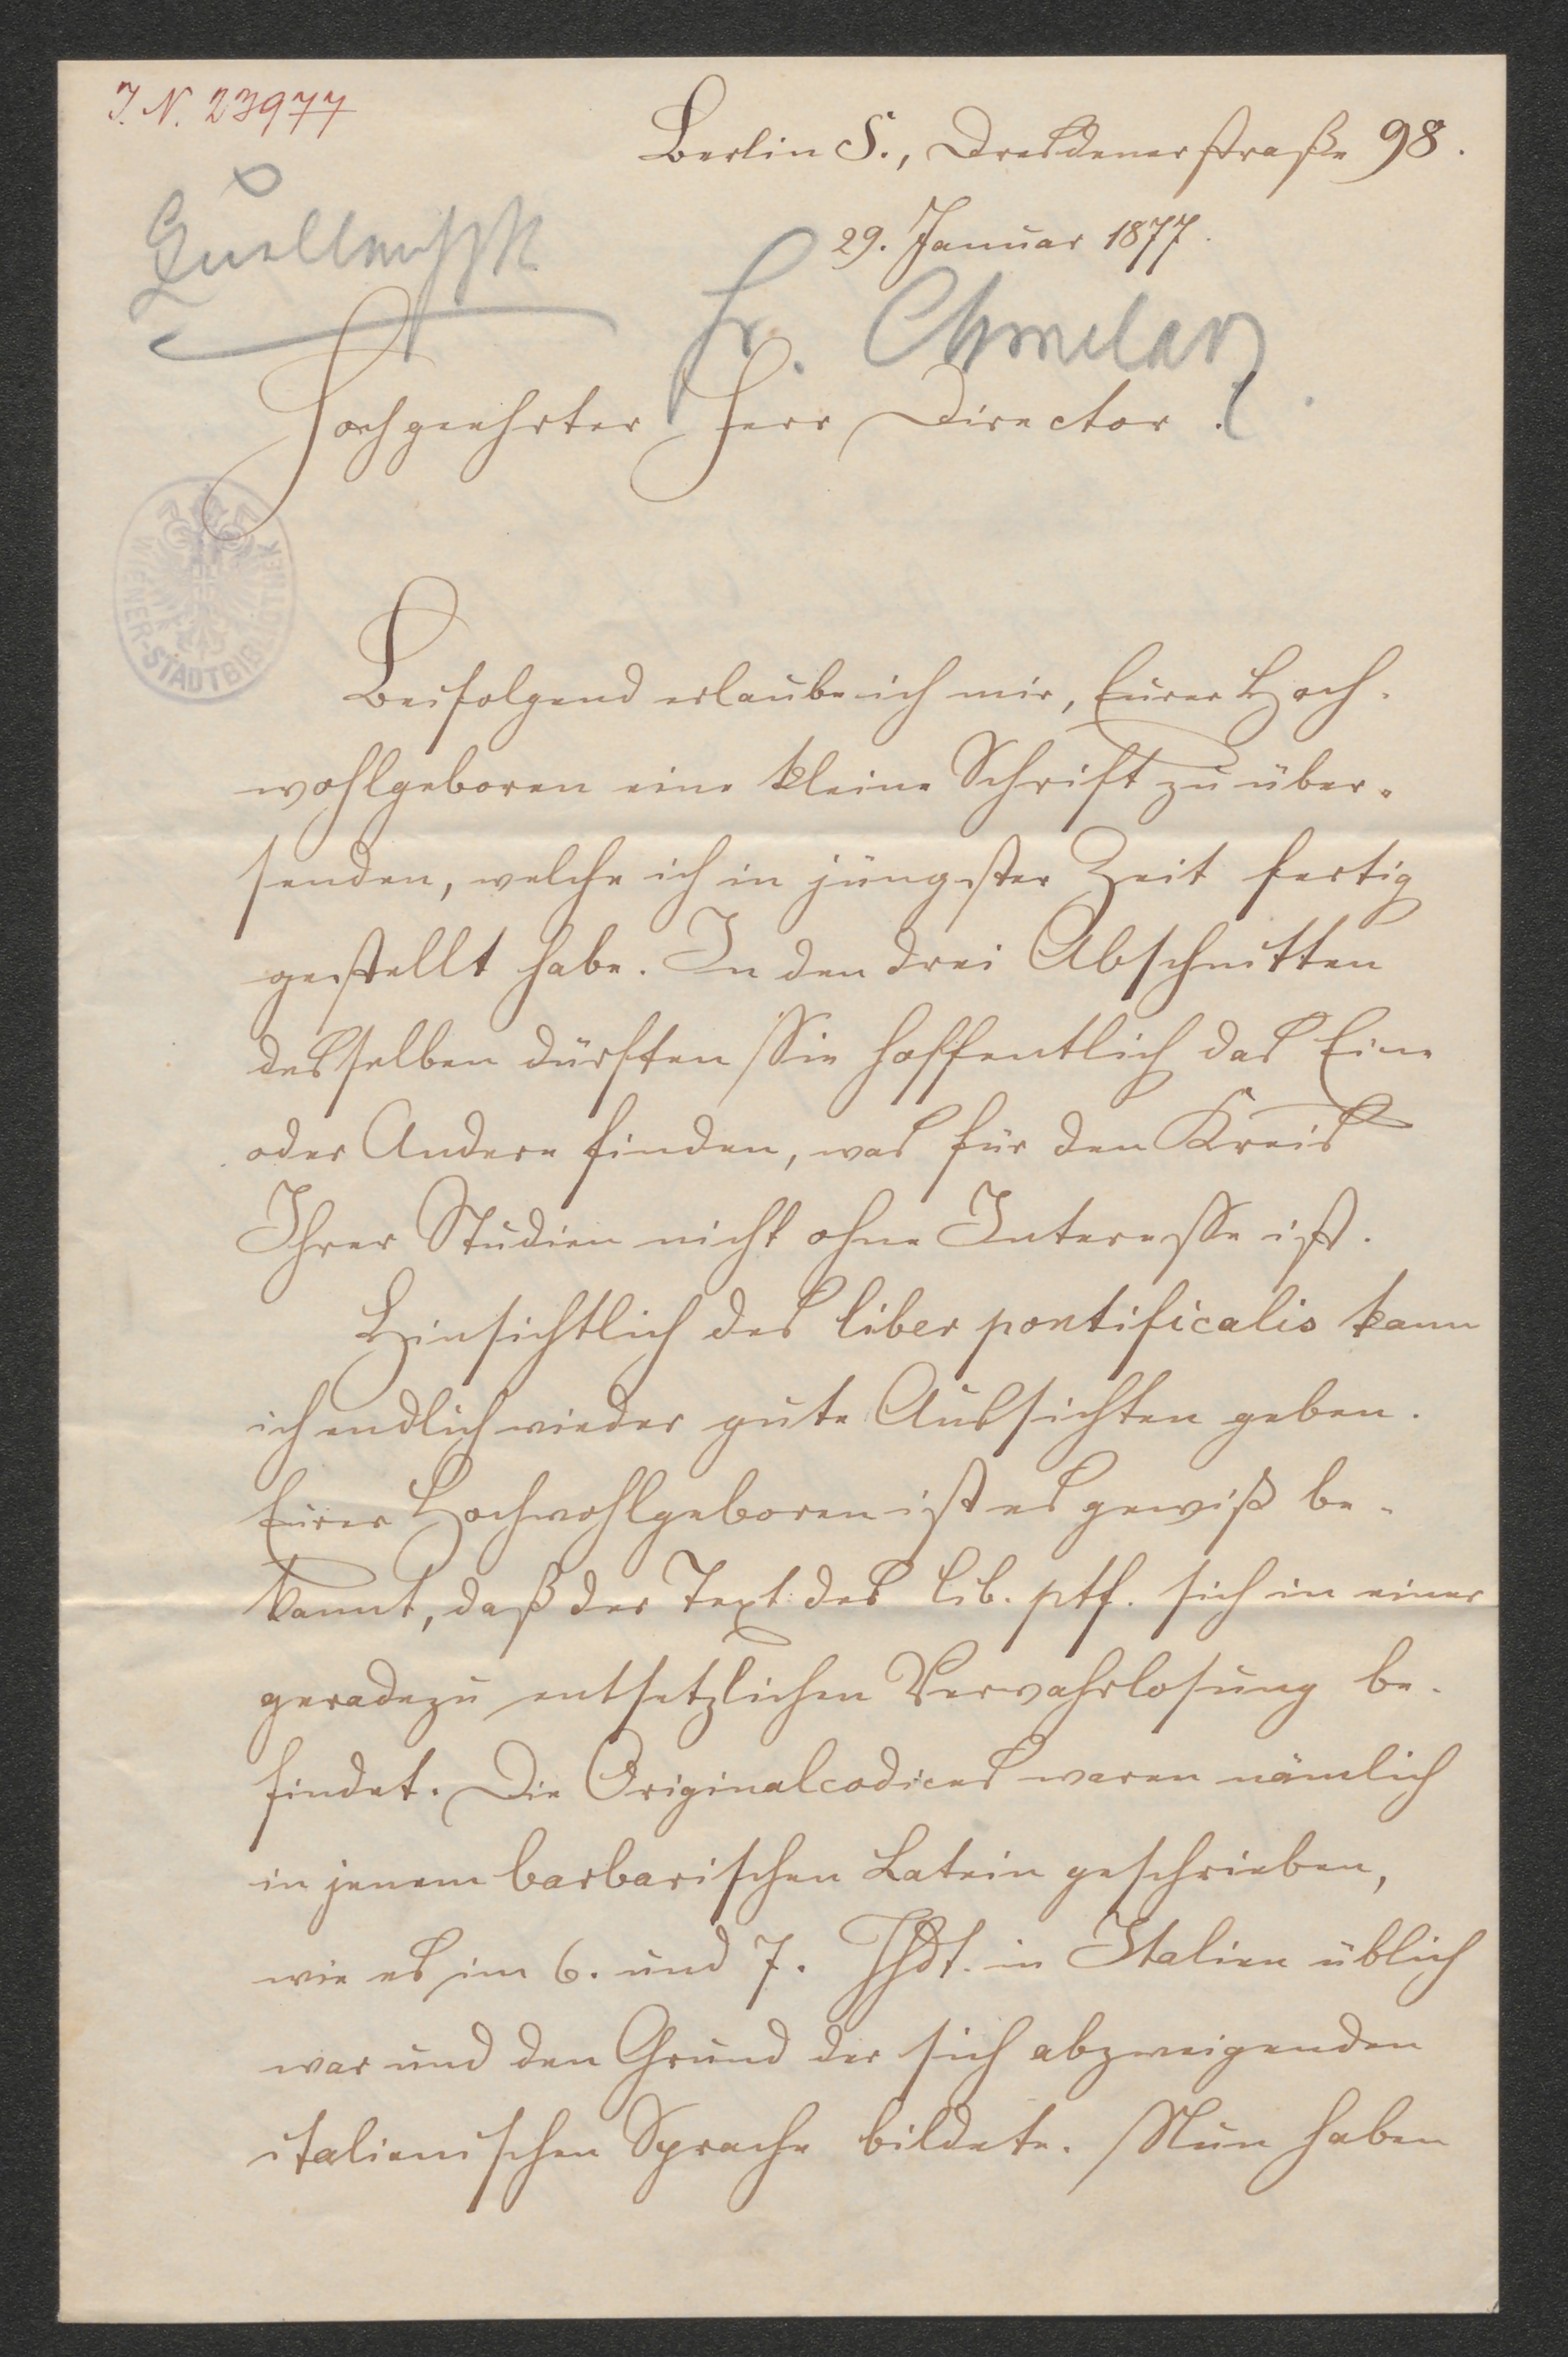 I. N. 23977
Berlin S., Dresdenerstraße 98.
29. Januar 1877.
Quellensch
Hr. Chmelarz
Hochgeehrter Herr Director!
WIENER-STADTBIBLIOTHEK
Beifolgend erlaube ich mir, Eurer Hoch-
wohlgeboren eine kleine Schrift zu über-
senden, welche ich in jüngster Zeit fertig
gestellt habe. In den drei Abschnitten
desselben dürften Sie hoffentlich das Eine
oder Andere finden, was für den Kreis
Ihrer Studien nicht ohne Interesse ist.
Hinsichtlich des liber pontificalis kann
ich endlich wieder gute Aussichten geben.
Eurer Hochwohlgeboren ist es gewiß be-
kannt, daß der Text des lib. ptf. sich in einer
geradezu entsetzlichen Verwahrlosung be-
findet. Die Originalcodices waren nämlich
in jenem barbarischen Latein geschrieben,
wie es im 6. und 7. Jhdt. in Italien üblich
war und den Grund der sich abzweigenden
italienischen Sprache bildete. Nun haben